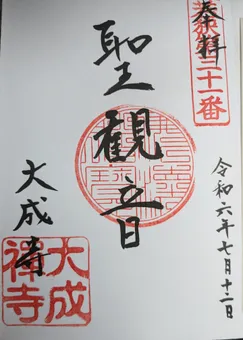 奉拝
三十一番
聖観音
令和六年七月十二日
大成寺
大成
禅寺